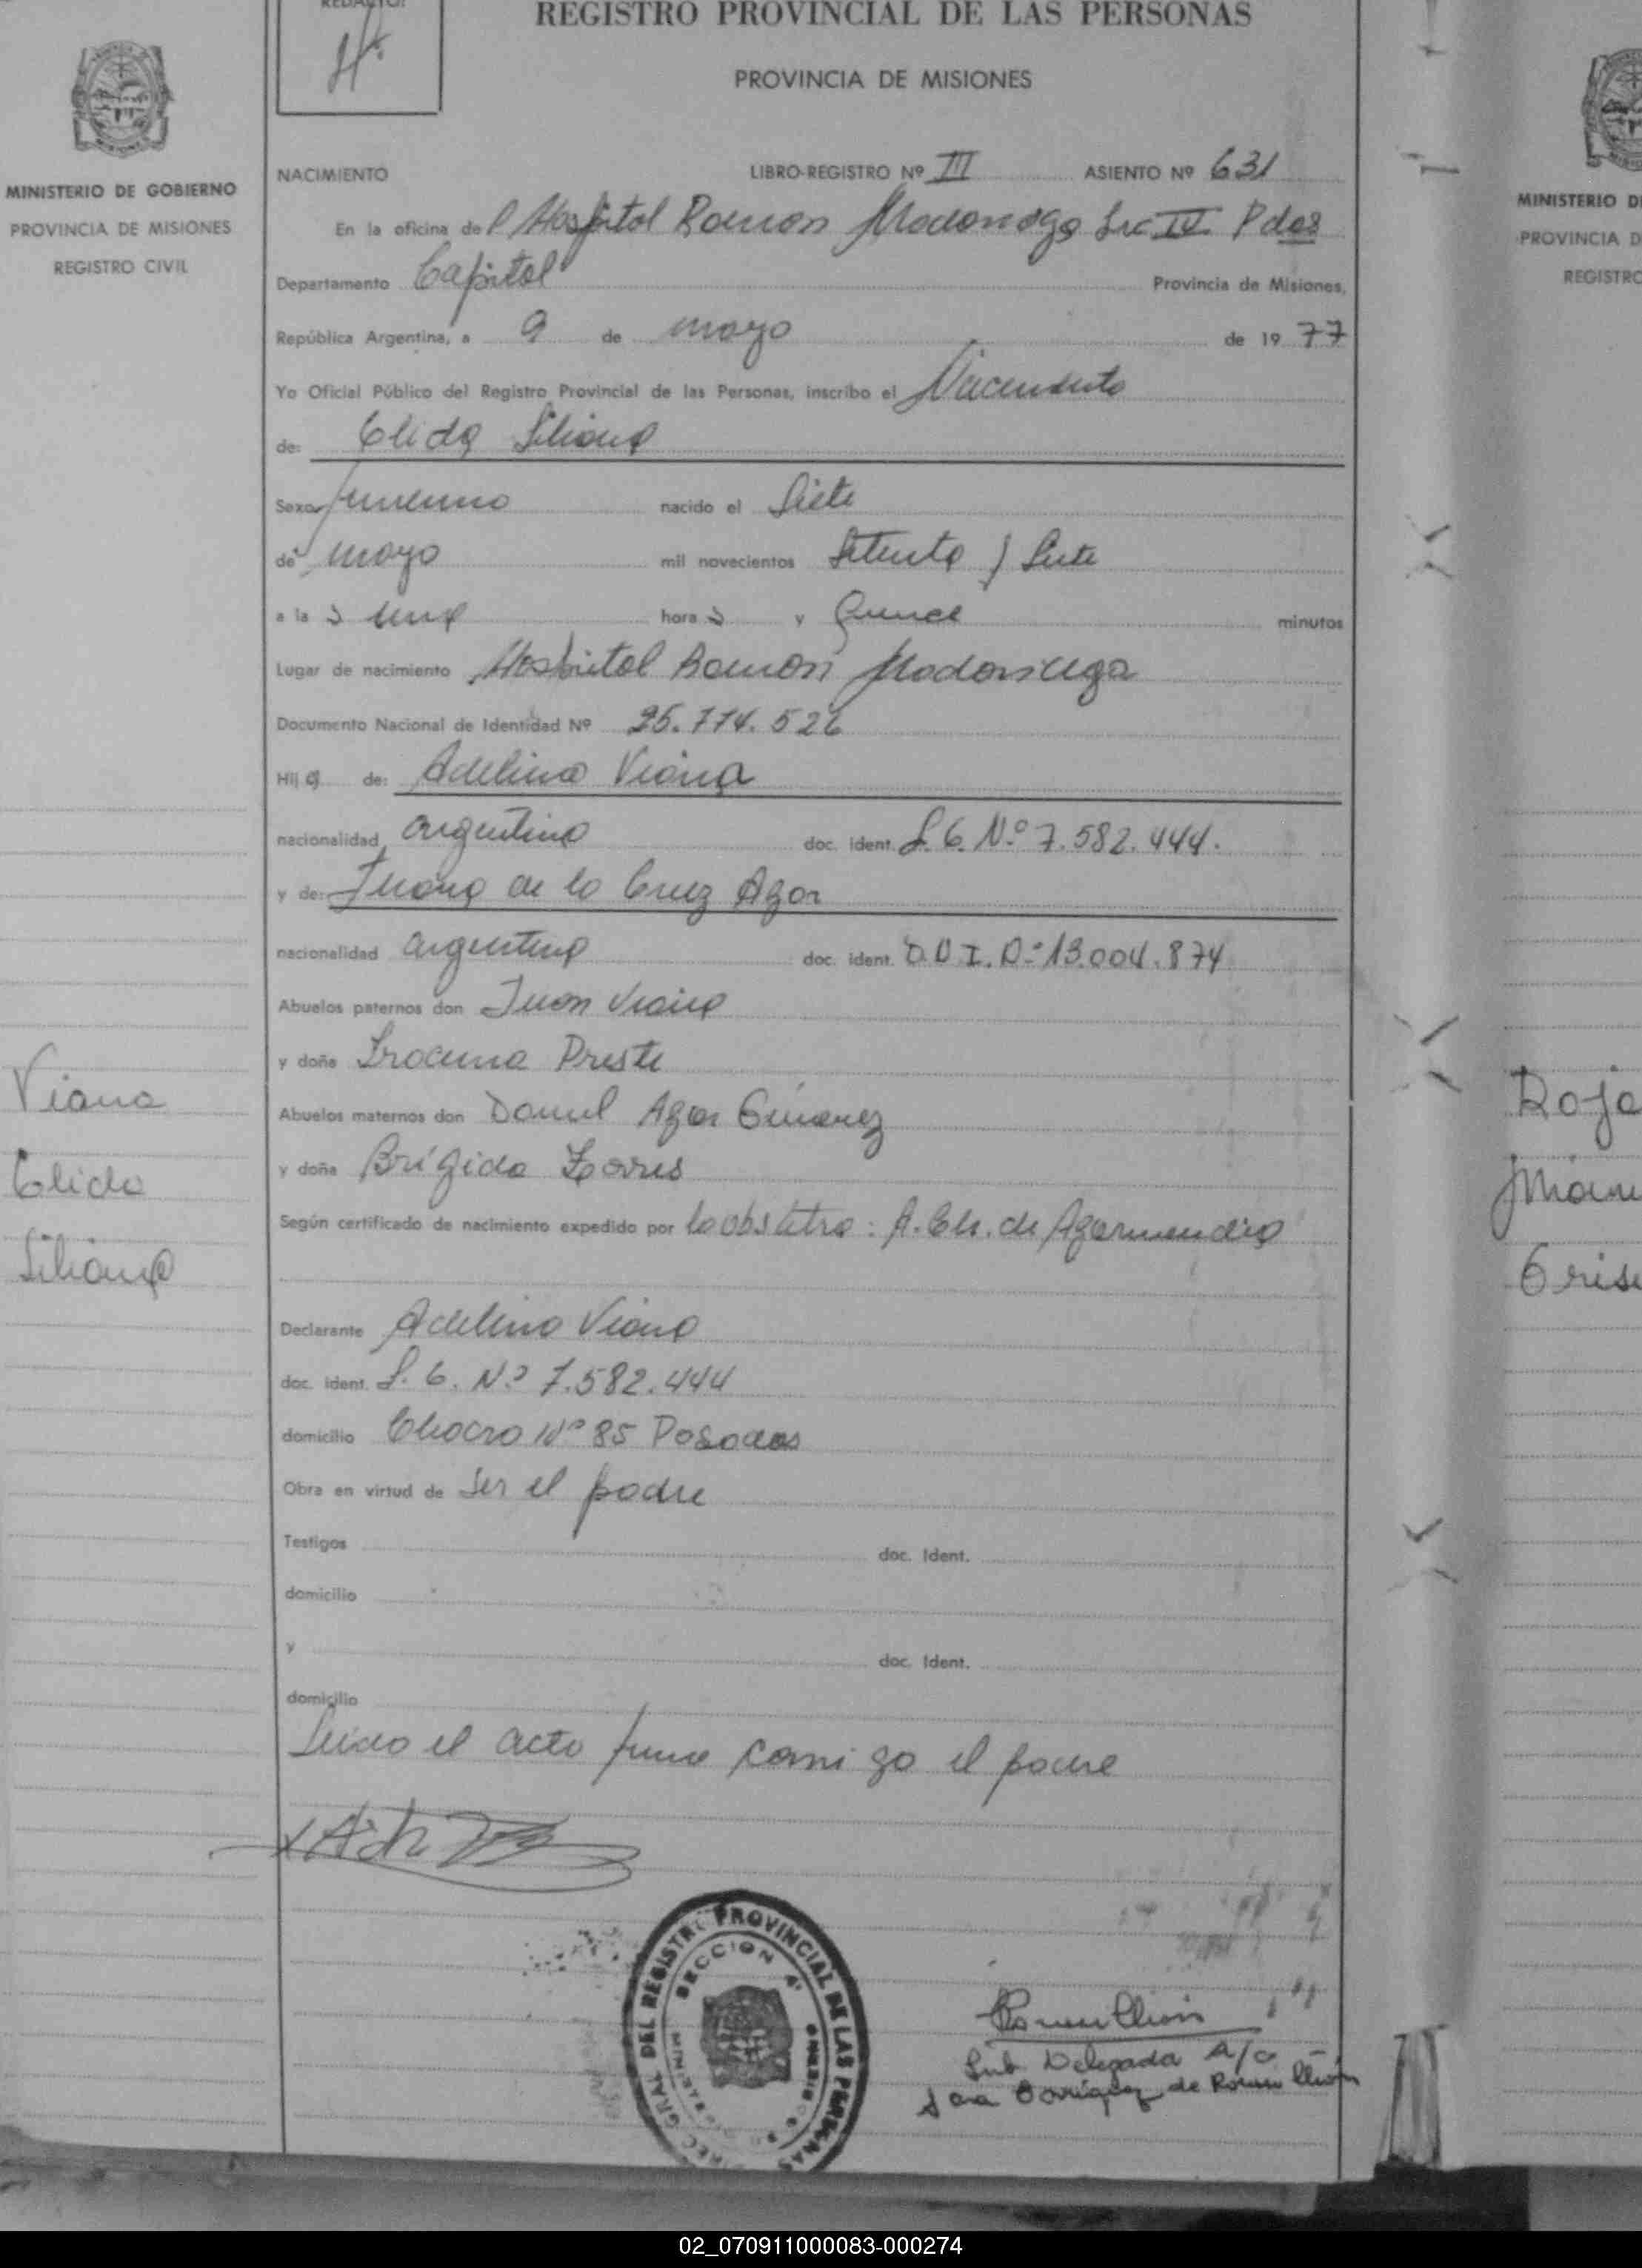 REDACTO:
REGISTRO PROVINCIAL DE LAS PERSONAS
PROVINCIA DE MISIONES
MINISTERIO DE GOBIERNO
PROVINCIA DE MISIONES
REGISTRO CIVIL
NACIMIENTO LIBRO-REGISTRO Nº III ASIENTO Nº 631
En la oficina del Hospital Ramon Madariaga Sec IV Pdas
Departamento Capital Provincia de Misiones,
República Argentina, a 9 de mayo de 1977
Yo Oficial Público del Registro Provincial de las Personas, inscribo el Nacimiento
de: Elida Liliana
Sexo femenino nacido el Siete
de mayo mil novecientos Setenta y Siete
a las una horas y Quince minutos
Lugar de nacimiento Hospital Ramón Madariaga
Documento Nacional de Identidad Nº 25.774.526
Hija de: Adelino Viana
nacionalidad argentina doc. ident. L.E. Nº 7.582.444.
y de: Juana de la Cruz Azar
nacionalidad argentina doc. ident. D.N.I. Nº 13.004.874
Abuelos paternos don Juan Viana
y doña Preste
Abuelos maternos don Daniel Azar Gimenez
y doña Brígida Torres
Según certificado de nacimiento expedido por la obstetra: A. Ch. de Agarmendia
Declarante Adelino Viana
doc. ident. L.E. Nº 7.582.444
domicilio Chacra Nº 85 Posadas
Obra en virtud de Ser el padre
Testigos doc. Ident.
domicilio
y doc. Ident.
domicilio
Leida el acta firma conmigo el padre
Viana
Elida
Liliana
DIREC. GRAL. DEL REGISTRO PROVINCIAL DE LAS PERSONAS
SECCION 4ª
Sub Delegada A/C
Sara de
MINISTERIO D
PROVINCIA D
REGISTRO
Roja
02_070911000083-000274